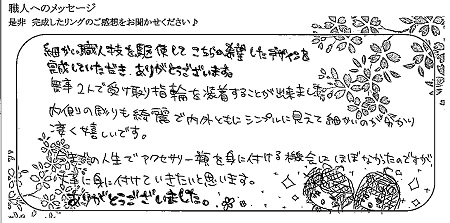 職人へのメッセージ
是非 完成したリングのご感想をお聞かせください♪
細かい職人技を駆使して こちらの希望したデザインを
完成していただき、ありがとうございます。
無事2人で受け取り指輪を装着することが出来ました
内側の彫りも綺麗で内外ともにシンプルに見えて細かいのが分かり
凄く嬉しいです。
までの人生でアクセサリー類を身に付ける機会はほぼなかったのですが
に身に付けていきたいと思います。
ありがとうございました。